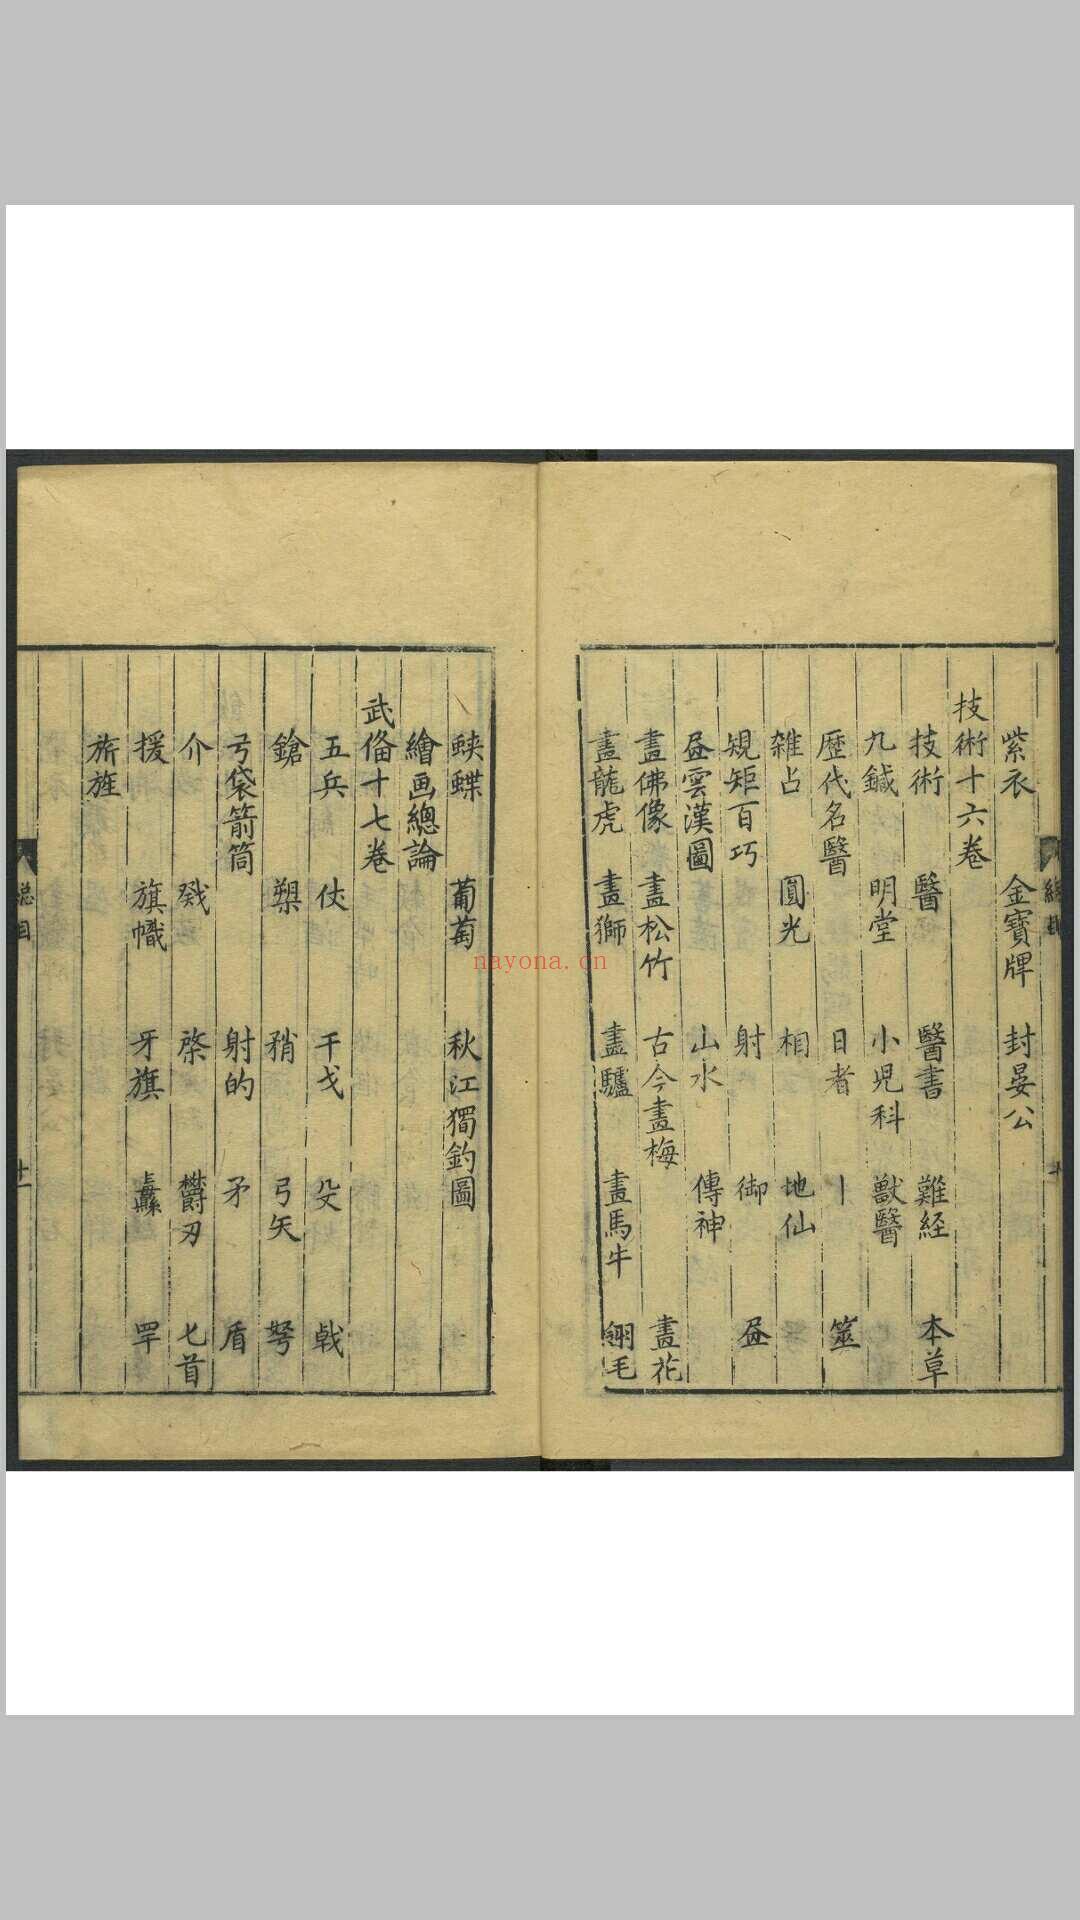 紫衣　金寶牌　封晏公
技術十六卷
技術　醫　醫書　難経　本草
九鍼　明堂　小児科　獸醫
歷代名醫　日者　卜　筮
雜占　圓光　相　地仙
規矩百巧　射　御　昼
昼雲漢圖　山水　傳神
畫佛像　畫松竹　古今畫梅　畫花
畫龍虎　畫獅　畫驢　畫馬牛　翎毛
蛺蝶　葡萄　秋江獨釣圖
繪画總論
武俻十七卷
五兵　仗　干戈　殳　戟
鎗　槊　矟　弓矢　弩
弓袋箭筒　射的　矛　盾
介　戣　棨　欝刃　匕首
援　旗幟　牙旗　纛　罕
旂旌
總目
十一
nayona.cn